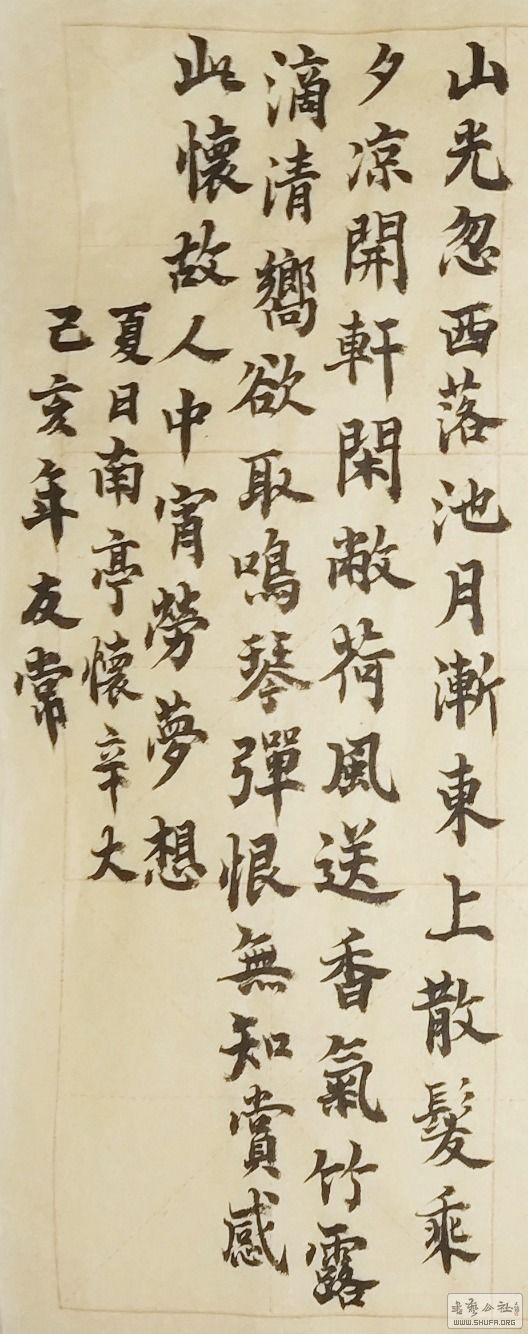 山光忽西落池月漸東上散髮乘
夕凉開軒閑敞荷風送香氣竹露
滴清嚮欲取鳴琴彈恨無知賞感
此懷故人中宵勞夢想
夏日南亭懷辛大
己亥年友常
書藝公社
WWW.SHUFA.ORG